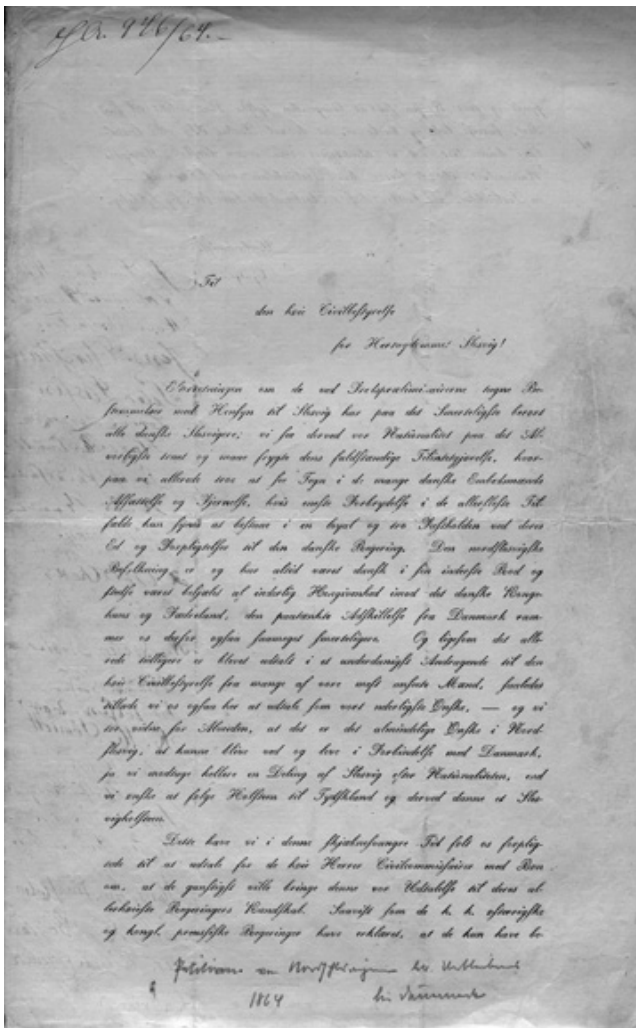 946/64.
Til
den høie Civilbestyrelse
for Hertugdømmet Slesvig!
Efterretningen om de ved Fredspræliminairerne tagne Be-
stemmelser med Hensyn til Slesvig har paa det Smerteligste berørt
alle danske Slesvigere; vi see derved vor Nationalitet paa det Al-
vorligste truet og maae frygte dens fuldstændige Tilintetgjørelse, hvor-
paa vi allerede troe at see Tegn i de mange danske Embedsmænds
Afsættelse og Fjernelse, hvis eneste Forbrydelse i de allerfleste Til-
fælde kun synes at bestaae i en loyal og tro Fastholden ved deres
Ed og Forpligtelser til den danske Regjering. Den nordslesvigske
Befolkning er og har altid været dansk i sin inderste Rod og
stedse været besjælet af inderlig Hengivenhed imod det danske Konge-
huus og Fædreland, den paatænkte Adskillelse fra Danmark ram-
mer os derfor ogsaa saameget smerteligere. Og ligesom det alle-
rede tidligere er blevet udtalt i et underdanigst Andragende til den
høie Civilbestyrelse fra mange af vore meest ansete Mænd, saaledes
tillade vi os ogsaa her at udtale som vort inderligste Ønske, — og vi
troe vidne for Almeden, at det er det almindelige Ønske i Nord-
slesvig, at kunne blive ved og leve i Forbindelse med Danmark,
ja vi modtage hellere en Deling af Slesvig efter Nationaliteten, end
vi ønske at følge Holsteen til Tydskland og derved danne et Sles-
vigholsteen.
Dette have vi i denne skjæbnesvangre Tid følt os forplig-
tede til at udtale for de høie Herrer Civilcommissairer med Bøn
om, at de gunstigst ville bringe denne vor Udtalelse til deres al-
lerhøieste Regjeringers Kundskab. Saavist som de k. k. østerrigske
og kongl. preussiske Regjeringer have erklæret, at de kun have be-
Petition
1864